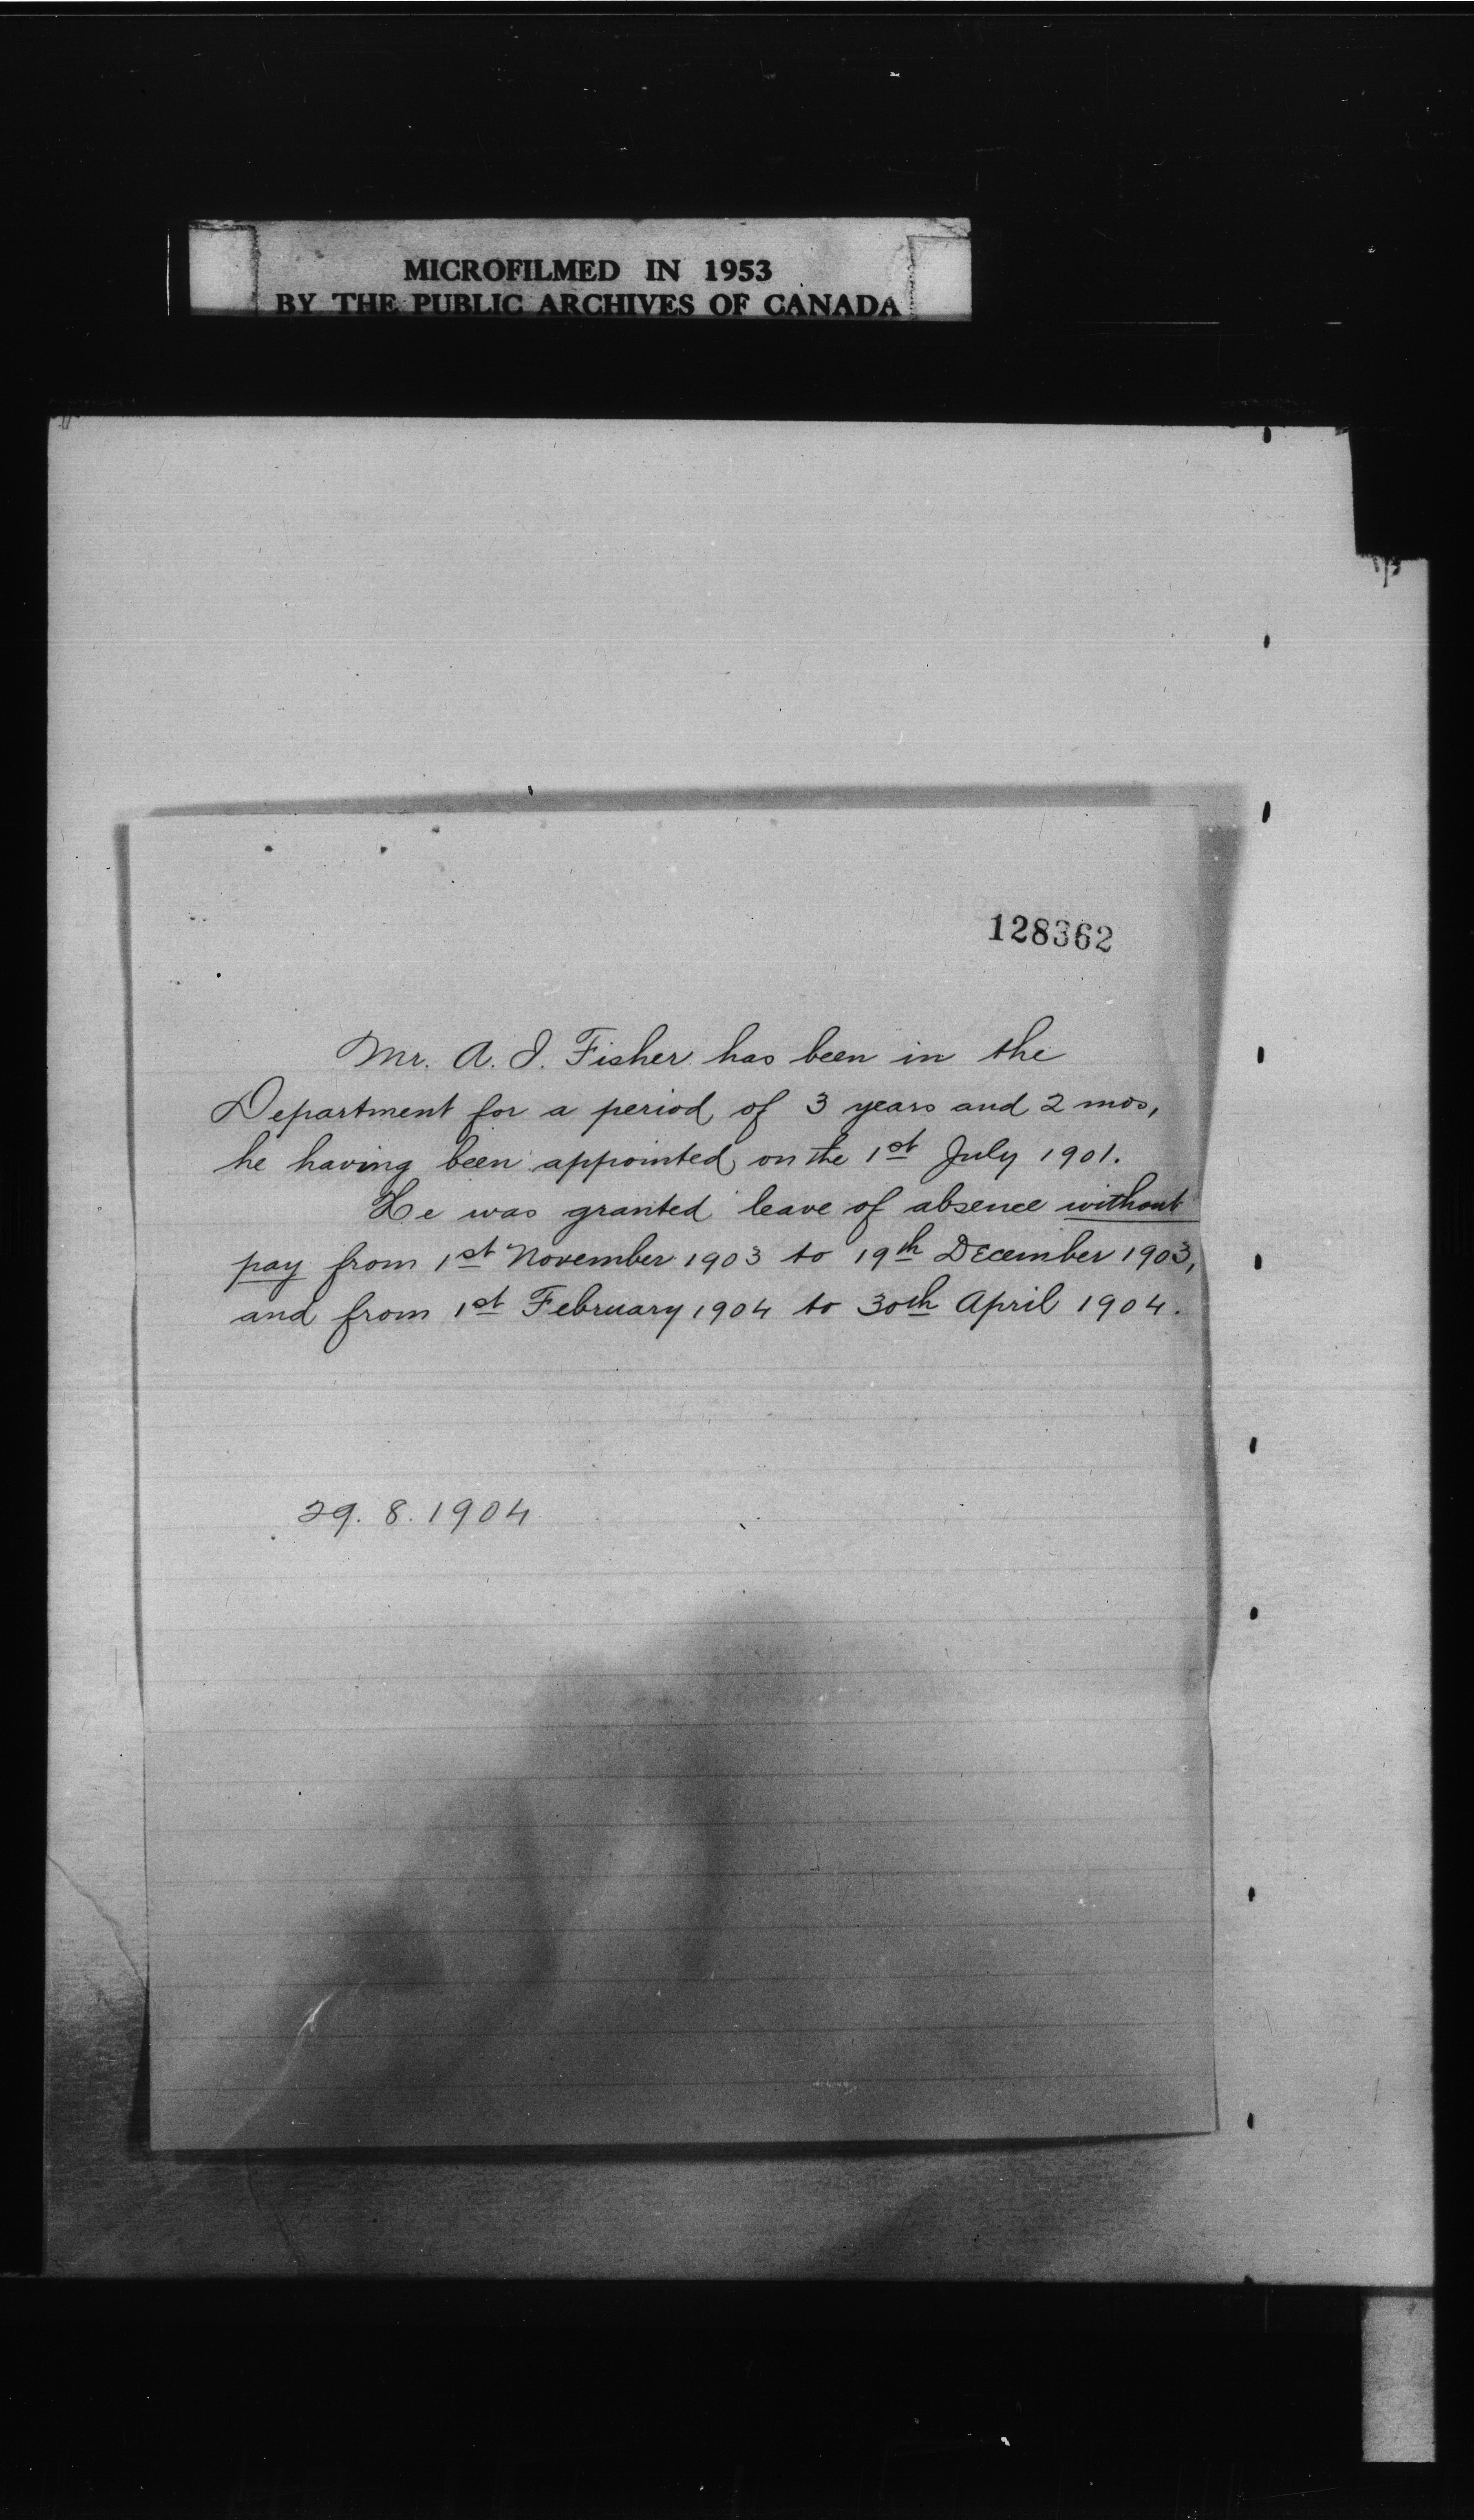 MICROFILMED IN 1953
BY THE PUBLIC ARCHIVES OF CANADA
128362
Mr. A. J. Fisher has been in the
Department for a period of 3 years and 2 mos,
he having been appointed on the 1st July 1901.
He was granted leave of absence without
pay from 1st November 1903 to 19th December 1903,
and from 1st February 1904 to 30th April 1904.
29. 8. 1904